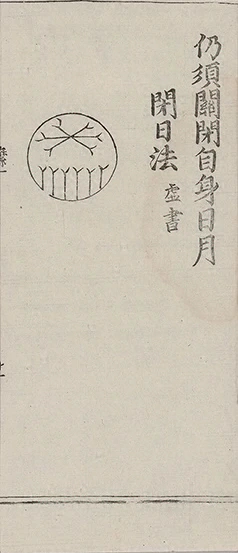 仍須關閉自身日月
閉日法 虛書